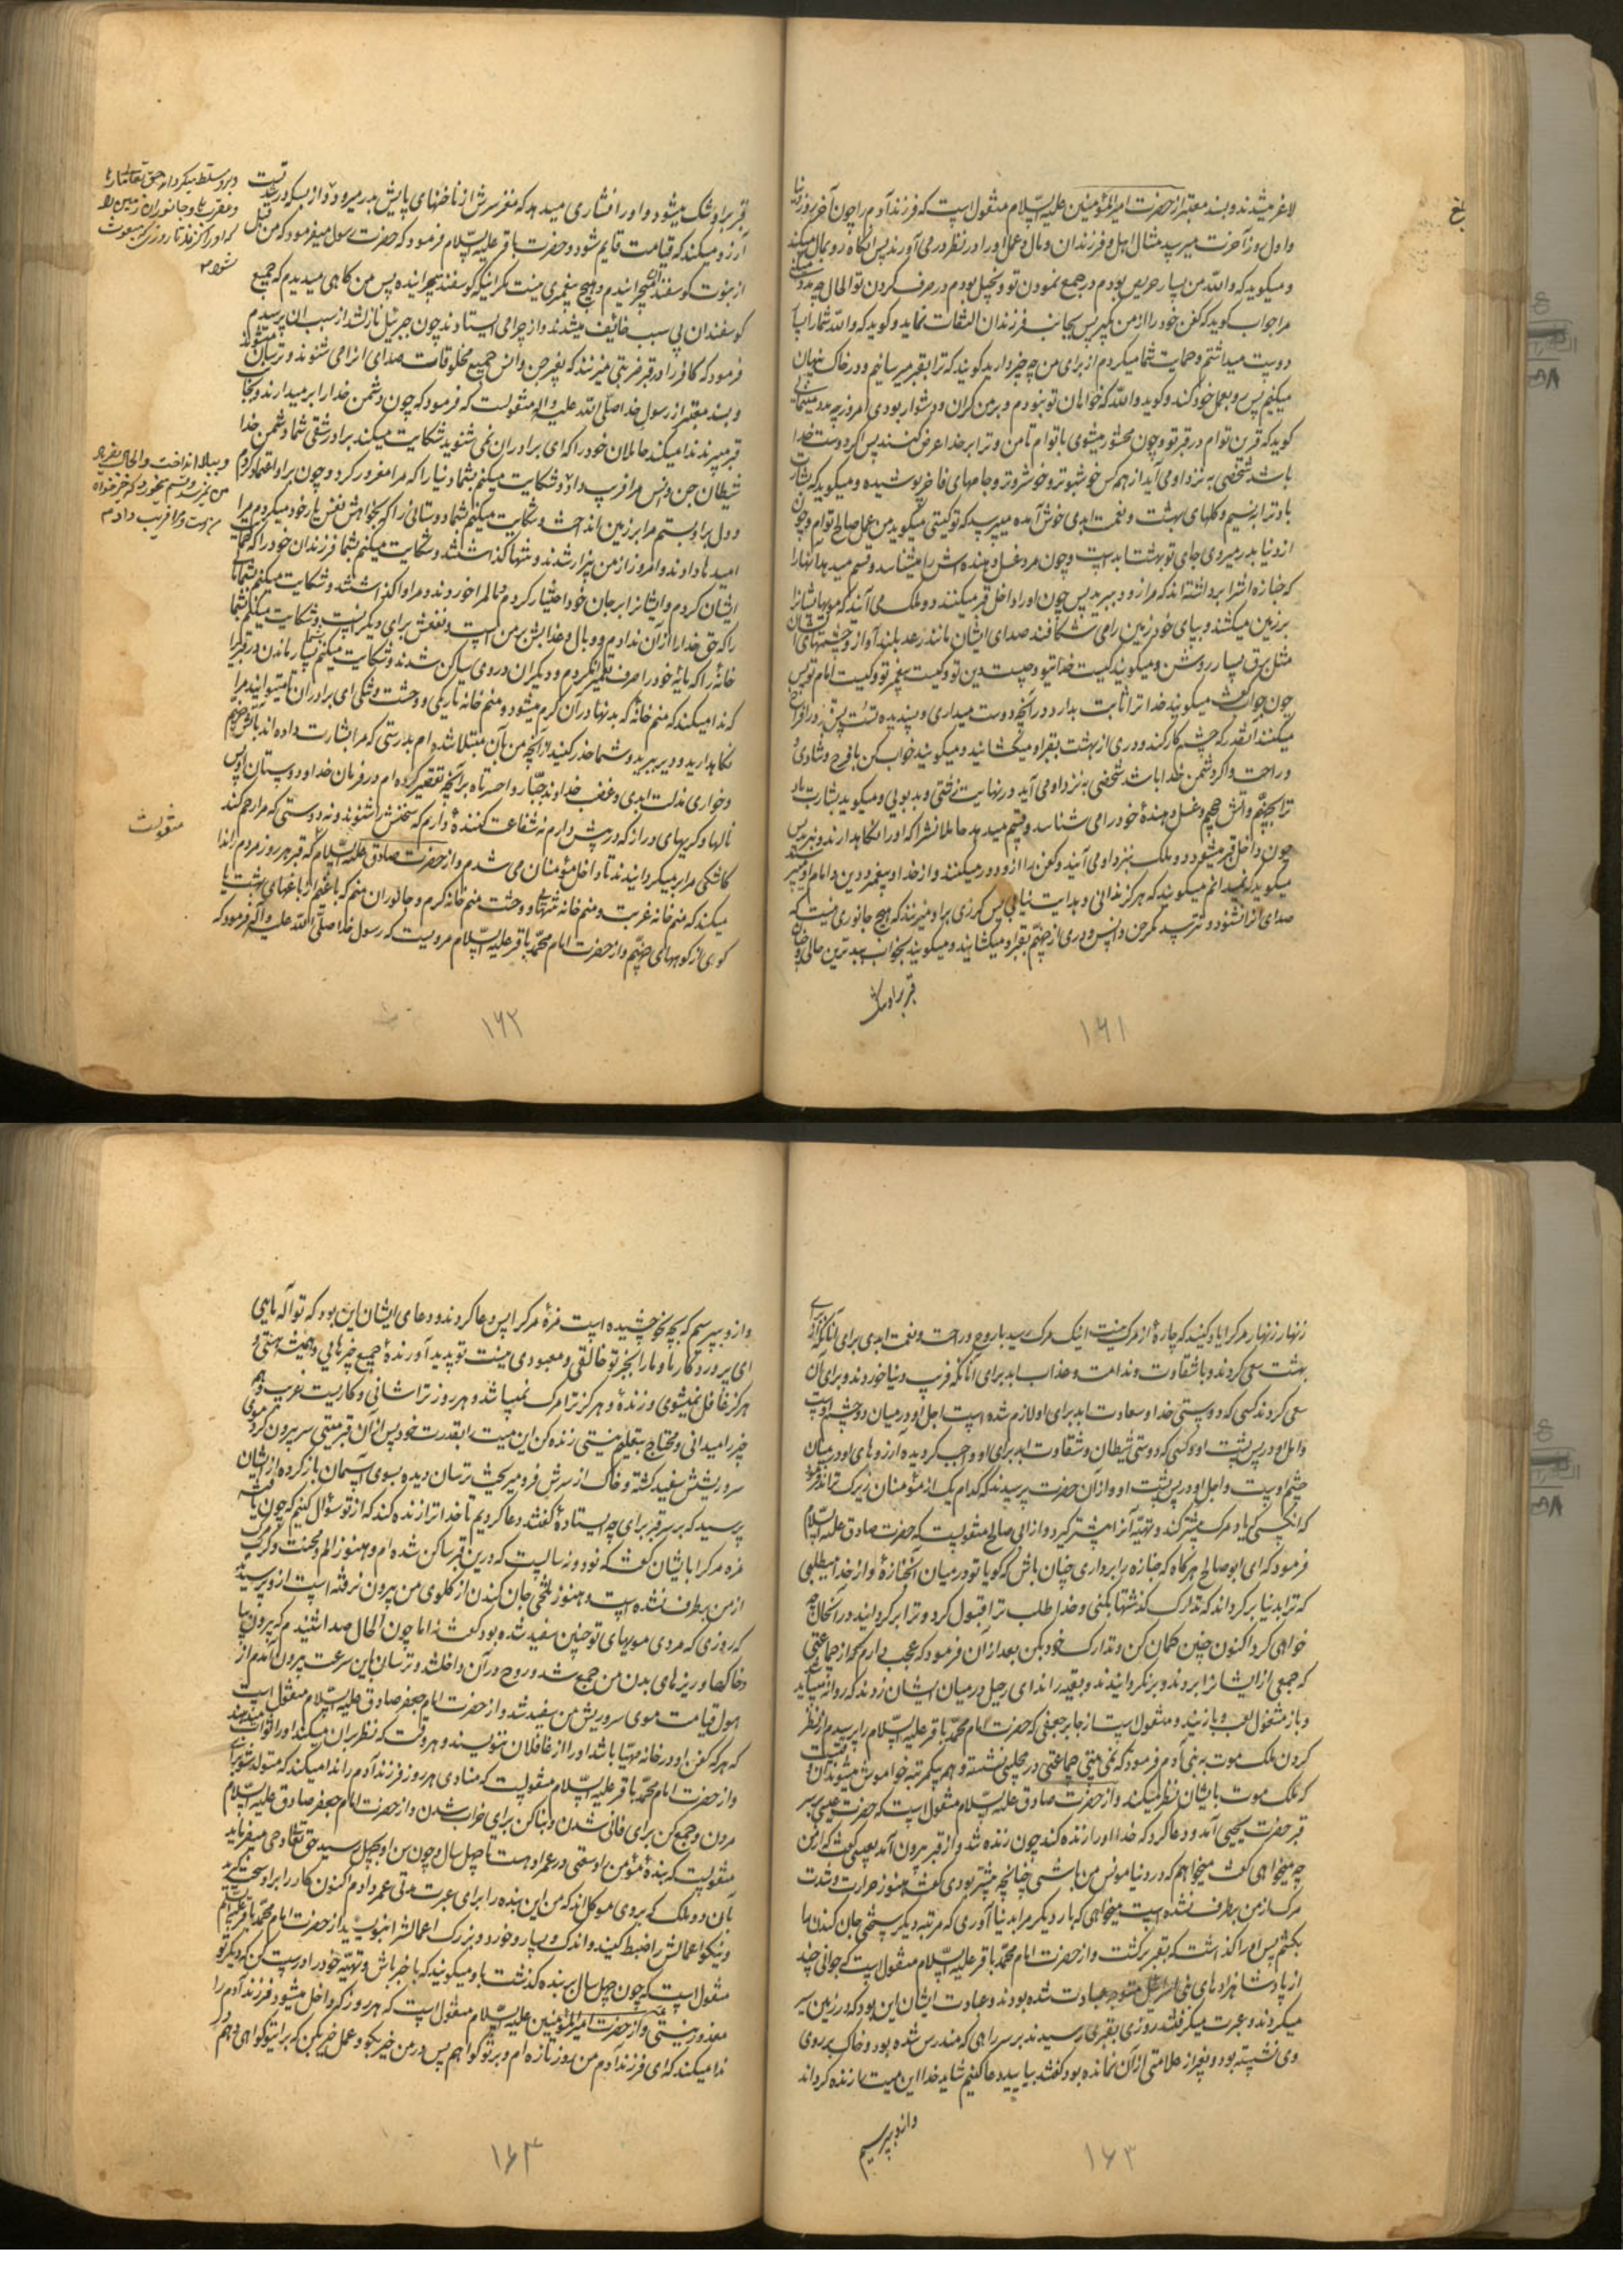 لاغر میشدند و بسند معتبر از حضرت امیرالمؤمنین علیه السلام منقول است که فرزند آدم را چون آخر روز دنیا
و اول روز آخرت میرسد مثال اهل و فرزندان و مال و عمل او را در نظر در می آورند پس آنگاه رو بمال میکند
و میگوید که والله من بسیار حریص بودم در جمع نمودن تو و بخیل بودم در صرف کردن تو الحال چه مدد
مرا جواب گوید که کفن خود را از من بگیر پس بجانب فرزندان التفات نماید و گوید که والله شما را
دوست میداشتم و حمایت شما میکردم از برای من چه چیز دارید گویند که ترا بقبر میرسانیم و در خاک پنهان
میکنیم پس رو بعمل خود کند و گوید والله که خواهان تو نبودم و بر من گران و دشوار بودی امروز چه مدد میکنی
گوید که قرین توام در قبر تو و چون محشور میشوی با توام تا من و ترا بر خدا عرض کنند پس اگر دوست خدا
باشد شخصی به نزد او می آید از همه کس خوشبوتر و خوشروتر و جامهای فاخر پوشیده و میگوید که بشارت
باد ترا بنسیم و گلهای بهشت و نعمت ابدی خوش آمده میپرسد که تو کیستی میگوید من عمل صالح توام و چون
از دنیا بدر میروی جای تو بهشت ابد است و چون مرد غسل دهنده اش را میشناسد و قسم میدهد آنها را
که جنازه اش را برداشته اند که مرا زود ببرید پس چون او را داخل قبر میکنند دو ملک می آیند که مویها
بر زمین میکشند و بپای خود زمین را می شکافند صدای ایشان مانند رعد بلند آواز و چشمهای ایشان
مثل برق بسیار روشن و میگویند کیست خدای تو و چیست دین تو و کیست پیغمبر تو و کیست امام تو پس
چون جواب گفت میگویند خدا ترا ثابت بدارد در آنچه دوست میداری و پسندیده تست پس قبر او را فراخ
میکنند آنقدر که چشم کار کند و دری از بهشت بقبر او میگشایند و میگویند خواب کن با فرح و شادی و
و راحت و اگر دشمن خدا باشد شخصی به نزد او می آید در نهایت زشتی و بدبویی و میگوید بشارت باد
ترا بجهنم و آتش جحیم و غسل دهندهٔ خود را می شناسد و قسم میدهد حاملانش را که او را نگاهدارند و نبرند پس
چون داخل قبر میشود دو ملک بنزد او می آیند و کفن را از او دور میکنند و از خدا و پیغمبر و دین و امام او
میگوید که نمیدانم میگویند که هرگز ندانی و هدایت نیابی پس گرزی بر او میزنند که هیچ جانوری نیست که
صدای آنرا نشنود و نترسد مگر جن و انس و دری از جهنم بقبر او میگشایند و میگویند بخواب به بدترین حالی و چنان
قبر بر او تنگ
۱۶۱
قبر بر او تنگ میشود و او را فشاری میدهد که مغز سرش از ناخنهای پایش بدر میرود و از بس که در شدتست
آرزو میکند که قیامت قایم شود و حضرت باقر علیه السلام فرمود که حضرت رسول میفرمود که من قبل
از نبوت گوسفند میچرانیدم و هیچ پیغمبری نیست مگر اینکه گوسفند چرانیده پس من گاهی میدیدم که جمیع
گوسفندان بی سبب خائف میشدند و از چرا می ایستادند چون جبرئیل نازل شد از سبب آن پرسیدم
فرمود که کافر را در قبر ضربتی میزنند که بغیر جن و انس جمیع مخلوقات صدای آنرا می شنوند و ترسان میشوند
و بسند معتبر از رسول خدا صلی الله علیه و اله منقولست که فرمود که چون دشمن خدا را بر میدارند و بجانب
قبر میبرند ندا میکند حاملان خود را که ای برادران نمی شنوید شکایت میکند برادر شقی شما دشمن خدا
شیطان جن و انس مرا فریب داد و شکایت میکنم بشما دنیا را که مرا مغرور کرد و چون بر او اعتماد کردم
و دل بر او بستم مرا بر زمین انداخت و شکایت میکنم بشما دوستانی را که بخواهش نفس یار خود میکردم مرا
امیدها دادند و امروز از من بیزار شدند و تنها گذاشتند و شکایت میکنم بشما فرزندان خود را که حمایت
ایشان کردم و ایشانرا بر جان خود اختیار کردم مالم را خوردند و مرا وا گذاشتند و شکایت میکنم بشما مالی
را که حق خدا را از آن ندادم و وبال و عذابش بر من است و نفعش برای دیگرانست و شکایت میکنم بشما
خانهٔ را که مایهٔ خود را صرف تعمیر آن کردم و دیگران در وی ساکن شدند و شکایت میکنم بسیار ماندن در قبر را
که ندا میکند که منم خانهٔ که بدنها در آن کرم میشود و منم خانه تاریکی و وحشت و تنگی ای برادران تا میتوانید مرا
نگاهدارید و دیر ببرید و شما حذر کنید از آنچه من بآن مبتلا شده ام بدرستی که مرا بشارت داده اند بآتش جهنم
و خواری مذلت ابدی و غضب خداوند جبار واحسرتاه بر آنچه تقصیر کرده ام در فرمان خدا و دوستان او پس
نالها و گریهای دراز که در پیش دارم نه شفاعت کنندهٔ دارم که سخنش را شنوند و نه دوستی که مرا رحم کند
کاشکی مرا بر میگردانیدند تا داخل مؤمنان می شدم و از حضرت صادق علیه السلام که قبر هر روز مردم را ندا
میکند که منم خانه غربت و منم خانه تنهائی و وحشت منم خانه کرم و جانوران منم که باغیم از باغهای بهشت یا
گوی از گوهای جهنم و از حضرت امام محمد باقر علیه السلام مرویست که رسول خدا صلی الله علیه و آله فرمود که
و بر او مسلط میگرداند حق تعالی مارها
و عقربها و جانوران زمین را
که او را گزند تا روزی که مبعوث
شود
منقولست
۱۶۲
زنهار زنهار مرگ را یاد کنید که چارهٔ از مرگ نیست اینک مرگ رسید با روح و راحت و نعمت ابدی برای آنانکه از برای
بهشت سعی کردند و با شقاوت و ندامت و عذاب ابد برای آنانکه فریب دنیا خوردند و برای آن
سعی کردند کسی که دوستی خدا و سعادت ابد برای او لازم شده است اجل او در میان دو چشم اوست
و امل او در پس پشت او و کسی که دوستی شیطان و شقاوت ابد برای او واجب گردیده آرزوهای او در میان
چشم اوست و اجل او در پس پشت او و از آن حضرت پرسیدند که کدام یک از مؤمنان زیرک تراند فرمود
که آنکسی که یاد مرگ بیشتر کند و تهیهٔ آنرا بیشتر گیرد و از ابی صالح منقولست که حضرت صادق علیه السلام
فرمود که ای ابو صالح هرگاه که جنازه را برداری چنان باش که گویا تو در میان آن جنازهٔ و از خدا میطلبی
که ترا بدنیا بر گرداند که تدارک گذشتها بکنی و خدا طلب ترا قبول کرد و ترا بر گردانید در آنحال چه
خواهی کرد اکنون چنین گمان کن و تدارک خود بکن بعد از آن فرمود که عجب دارم از جماعتی
که جمعی از ایشانرا بردند و بر نگردانیدند و بقیه را ندای رحیل در میان ایشان زدند که روانه میباید شد
و باز مشغول لعب و بازیند و منقول است از جابر جعفی که حضرت امام محمد باقر علیه السلام را پرسیدم از نظر
کردن ملک موت به بنی آدم فرمود که نمی بینی جماعتی در مجلسی نشسته و همه یکمرتبه خاموش میشوند آن وقتیست
که ملک موت بایشان نظر میکند و از حضرت صادق علیه السلام منقول است که حضرت عیسی بر سر
قبر حضرت یحیی آمد و دعا کرد که خدا او را زنده کند چون زنده شد و از قبر بیرون آمد بعیسی گفت که از من
چه میخواهی گفت میخواهم که در دنیا مونس من باشی چنانچه پیشتر بودی گفت هنوز حرارت و شدت
مرگ از من بر طرف نشده است میخواهی که بار دیگر مرا بدنیا آوری که مرتبه دیگر سختی جان کندن را
بکشم پس او را گذاشت که بقبر برگشت و از حضرت امام محمد باقر علیه السلام منقول است که جوانی چند
از پادشاه زادهای بنی اسرائیل متوجه عبادت شده بودند و عبادت ایشان این بود که در زمین سیر
میکردند و عبرت میگرفتند روزی بقبری رسیدند بر سر راهی که مندرس شده بود و خاک بر روی
وی نشسته بود و بغیر از علامتی از آن نمانده بود گفتند بیایید دعا کنیم شاید خدا این میت را زنده گرداند
و از وی بپرسیم
۱۶۳
و از و بپرسیم که بچه نحو چشیده است مزهٔ مرگ را پس دعا کردند و دعای ایشان این بود که تو اله مایی
ای پروردگار ما و ما را بجز تو خالقی و معبودی نیست تو پدید آورندهٔ جمیع چیزهایی و همیشه هستی و
هرگز غافل نمیشوی و زندهٔ و هرگز ترا مرگ نمیباشد و هر روز ترا شأنی و کاریست غریب و همه
چیز را میدانی و محتاج بتعلیم نیستی زنده کن این میت را بقدرت خود پس از آن قبر میتی سر بیرون کرد موی
سر و ریشش سفید گشته و خاک از سرش فرو میریخت ترسان دیده بسوی آسمان باز کرده از ایشان
پرسید که بر سر قبر برای چه ایستادهٔ گفتند دعا کردیم تا خدا ترا زنده کند که از تو سؤال کنیم که چون یافتهٔ
مزه مرگ را بایشان گفت که نود و نه سالست که درین قبر ساکن شده ام و هنوز الم و محنت و کرب مرگ
از من بر طرف نشده است و هنوز تلخی جان کندن از گلوی من بیرون نرفته است از و پرسیدند
که روزی که مردی مویهای تو چنین سفید شده بود گفت نه اما چون الحال صدا شنیدم که بیرون بیا
خاکها و ریزهای بدن من جمع شد و روح در آن داخل شد و ترسان باین سرعت بیرون آمدم از
هول قیامت موی سر و ریش من سفید شد و از حضرت امام جعفر صادق علیه السلام منقول است
که هر که کفن او در خانه مهیا باشد او را از غافلان ننویسند و هر وقت که نظر بر آن میکند او را ثواب میدهند
و از حضرت امام محمد باقر علیه السلام منقولست که منادی هر روز فرزند آدم را ندا میکند که متولد شو برای
مردن و جمع کن برای فانی شدن و بنا کن برای خراب شدن و از حضرت امام جعفر صادق علیه السلام
منقولست که بندهٔ مؤمن را وسعتی در عمر او هست تا چهل سال و چون سن او بچهل رسید حق تعالی وحی میفرماید
بآن دو ملک که بروی موکل اند که من این بنده را برای عبرت مدتی عمر دادم اکنون کار را بر او سخت گیرید
و نیکو اعمالش را ضبط کنید و اندک و بسیار و خورد و بزرگ اعمالش را بنویسید از حضرت امام محمد باقر علیه السلام
منقول است که چون چهل سال بر بنده گذشت باو میگویند که با خبر باش و تهیهٔ خود را درست کن که دیگر تو
معذور نیستی و از حضرت امیرالمؤمنین علیه السلام منقول است که هر روز که داخل میشود فرزند آدم را
ندا میکند که ای فرزند آدم من روز تازه ام و بر تو گواهم پس در من خیر بگو و عمل خیر بکن که برای تو گواهی دهم در
۱۶۴